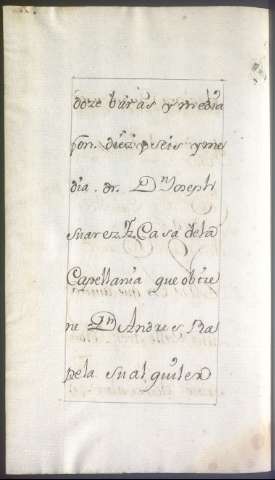 doze baras y media
son. diez y seis y me
dia. dr. Dn Joseph
suarez Yz. Casa dela
Capellania que obtie
ne Dn Andres Ra
pela su al quiler